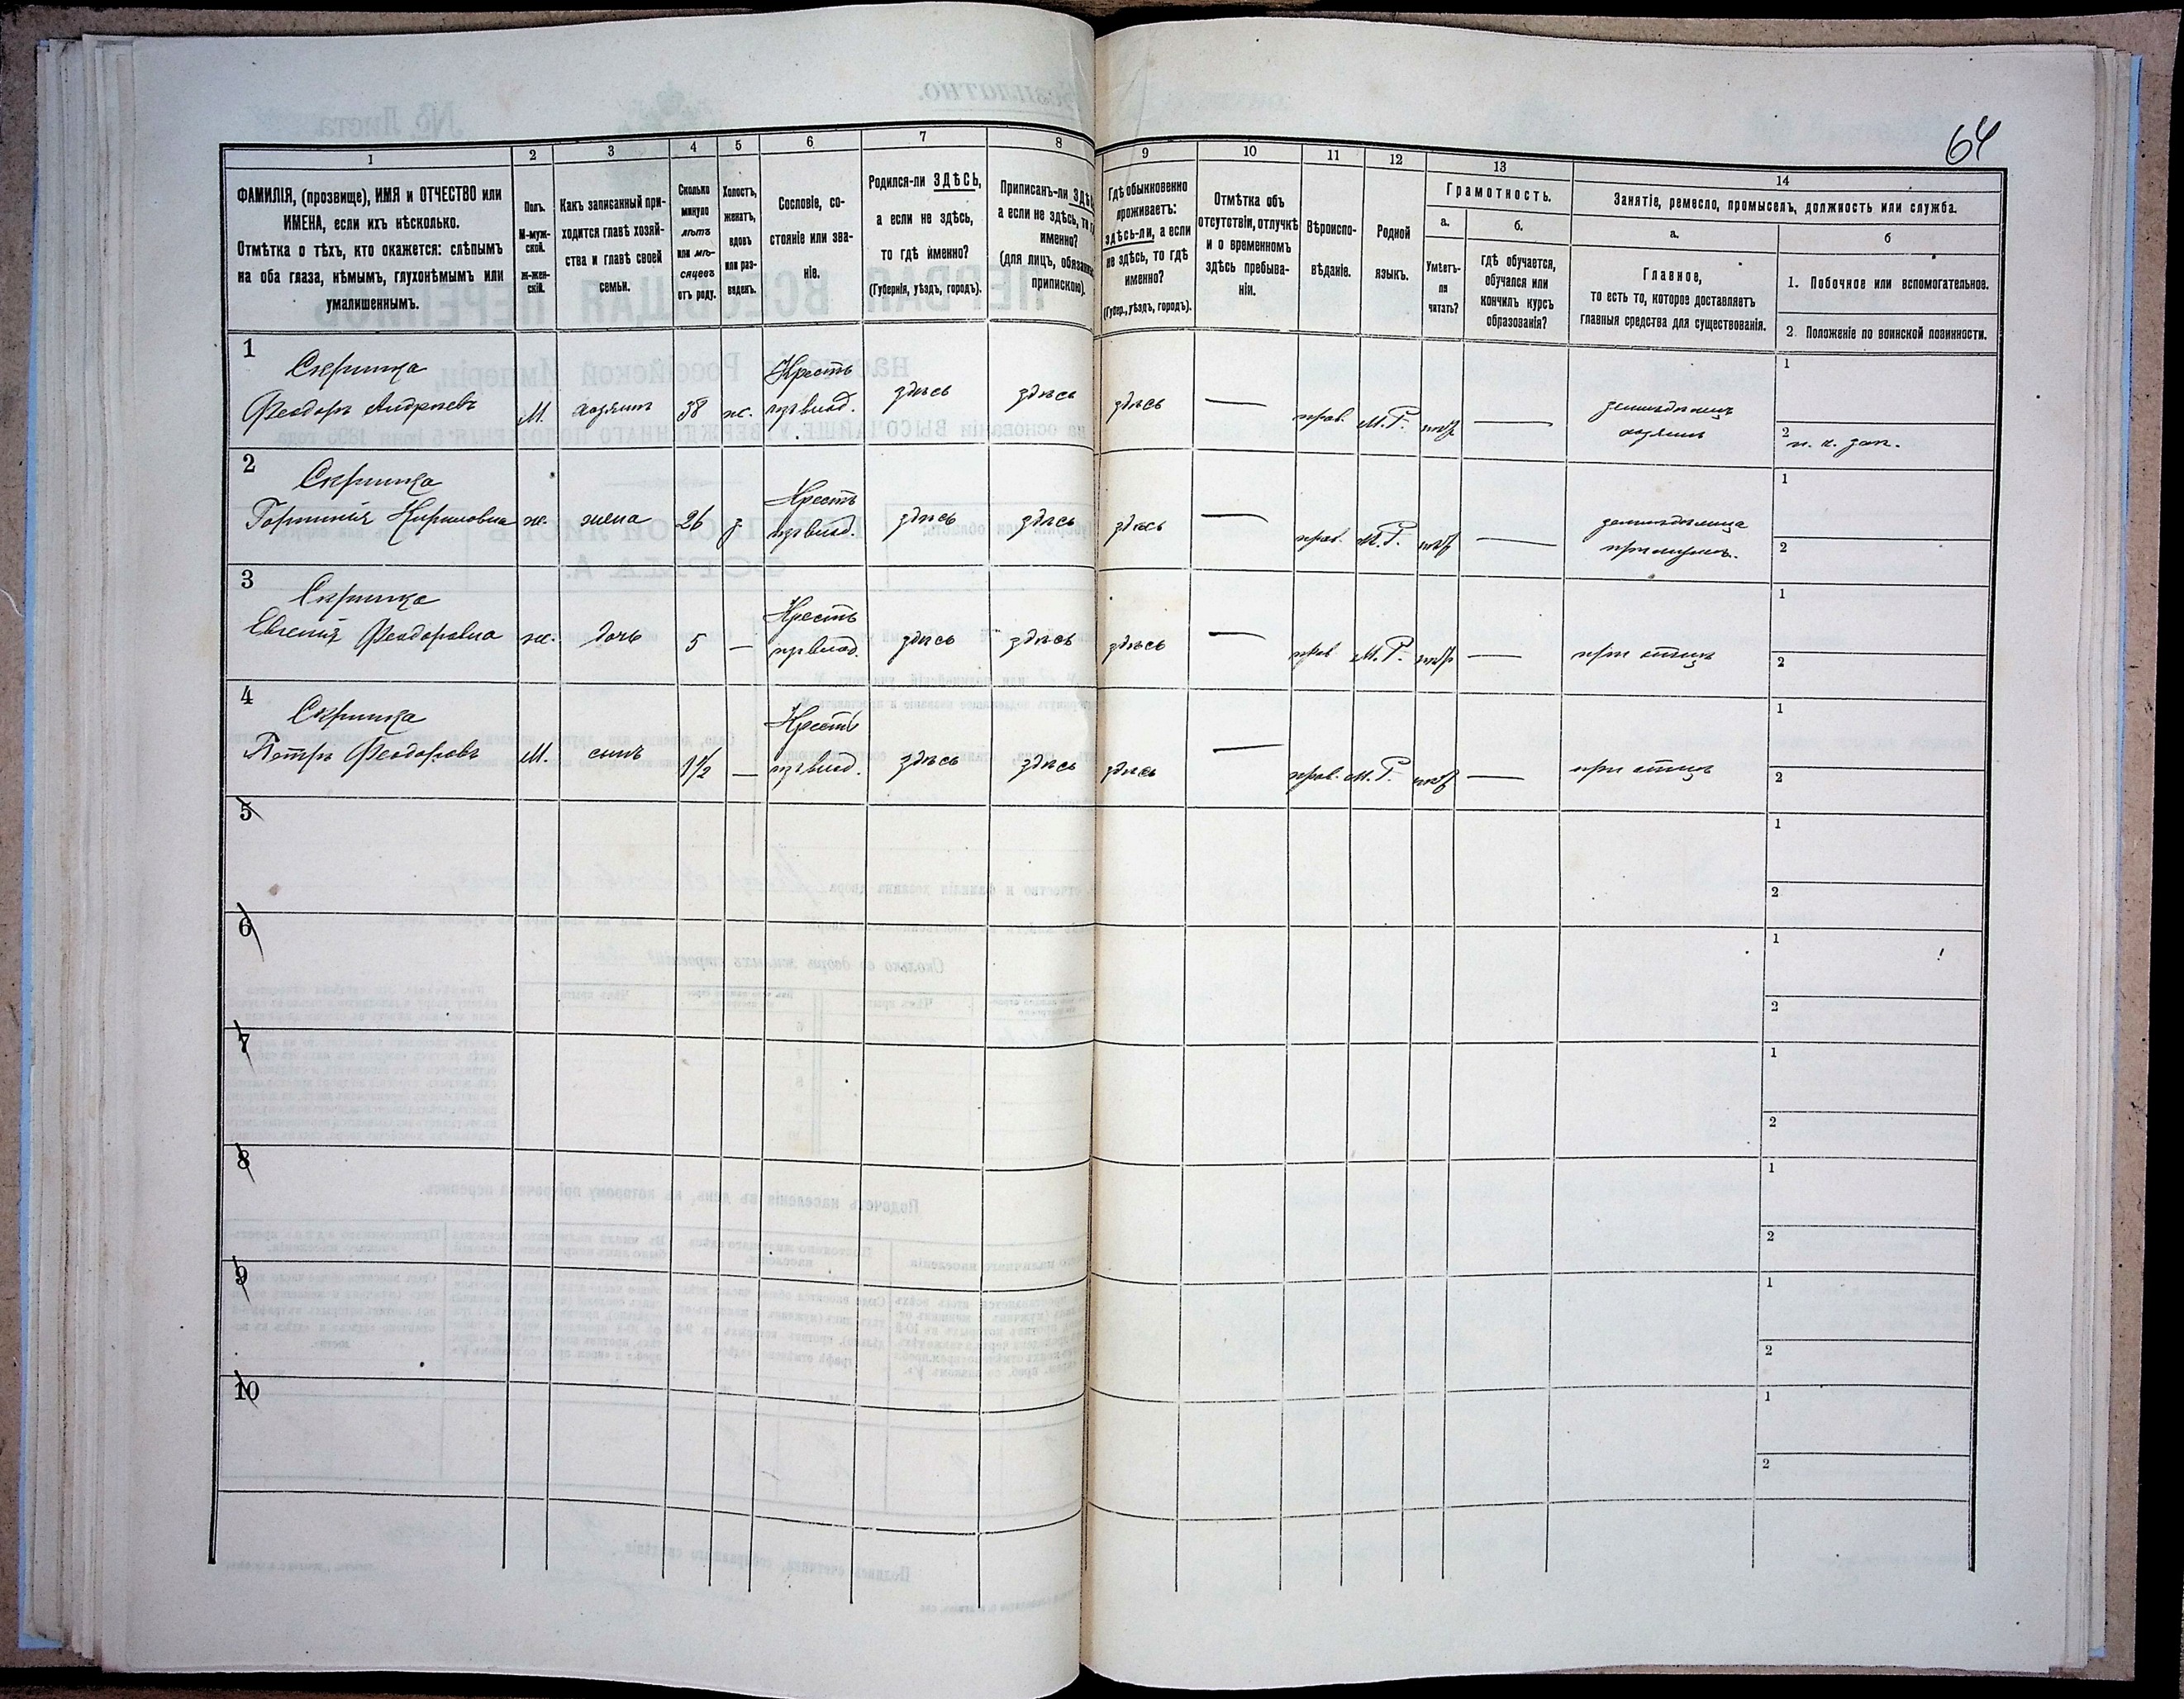 64
1 2 3 4 5 6 7 8 9 10 11 12 13 14
ФАМИЛІЯ, (прозвище), ИМЯ и ОТЧЕСТВО или
ИМЕНА, если ихъ нѣсколько.
Отмѣтка о тѣхъ, кто окажется: слѣпымъ
на оба глаза, нѣмымъ, глухонѣмымъ или
умалишеннымъ.
Полъ.
М-муж-
ской.
ж-жен-
скій.
Какъ записанный при-
ходится главѣ хозяй-
ства и главѣ своей
семьи.
Сколько
минуло
лѣтъ
или мѣ-
сяцевъ
отъ роду.
Холостъ,
женатъ,
вдовъ
или раз-
веденъ.
Сословіе, со-
стояніе или зва-
ніе.
Родился-ли ЗДѢСЬ,
а если не здѣсь,
то гдѣ именно?
(Губернія, уѣздъ, городъ).
Приписанъ-ли
а если не здѣсь,
именно?
(для лицъ,
припискою).
Гдѣ обыкновенно
проживаетъ:
здѣсь-ли, а если
не здѣсь, то гдѣ
именно?
(Губер., уѣздъ, городъ).
Отмѣтка объ
отсутствіи, отлучкѣ
и о временномъ
здѣсь пребыва-
ніи.
Вѣроиспо-
вѣданіе.
Родной
языкъ.
Грамотность.
а.
Умѣетъ-
ли
читать?
б.
гдѣ обучается,
обучался или
кончилъ курсъ
образованія?
Занятіе, ремесло, промыселъ, должность или служба.
а.
Главное,
то есть то, которое доставляетъ
главныя средства для существованія.
б
1. Побочное или вспомогательное.
2. Положеніе по воинской повинности.
1
Скрипка Кресть 1
Феодоръ Андреевъ М. хозяинъ 38 ж. из влад. здѣсь здѣсь здѣсь — прав. М.Р. — земледѣлецъ
хозяинъ 2
2
Скрипка Кресть 1
Кириловна ж. жена 26 з. из влад. здѣсь здѣсь здѣсь — прав. М.Р. — 2
3
Скрипка Кресть 1
Евгенія Феодоровна ж. дочь 5 — из влад. здѣсь здѣсь здѣсь — прав. М.Р. — при отцѣ 2
4
Скрипка Кресть 1
Петръ Феодоровъ М. сынъ 1 1/2 — из влад. здѣсь здѣсь здѣсь — прав. М.Р. — при отцѣ 2
5 1
2
6 1
2
7 1
2
8 1
2
9 1
2
10 1
2